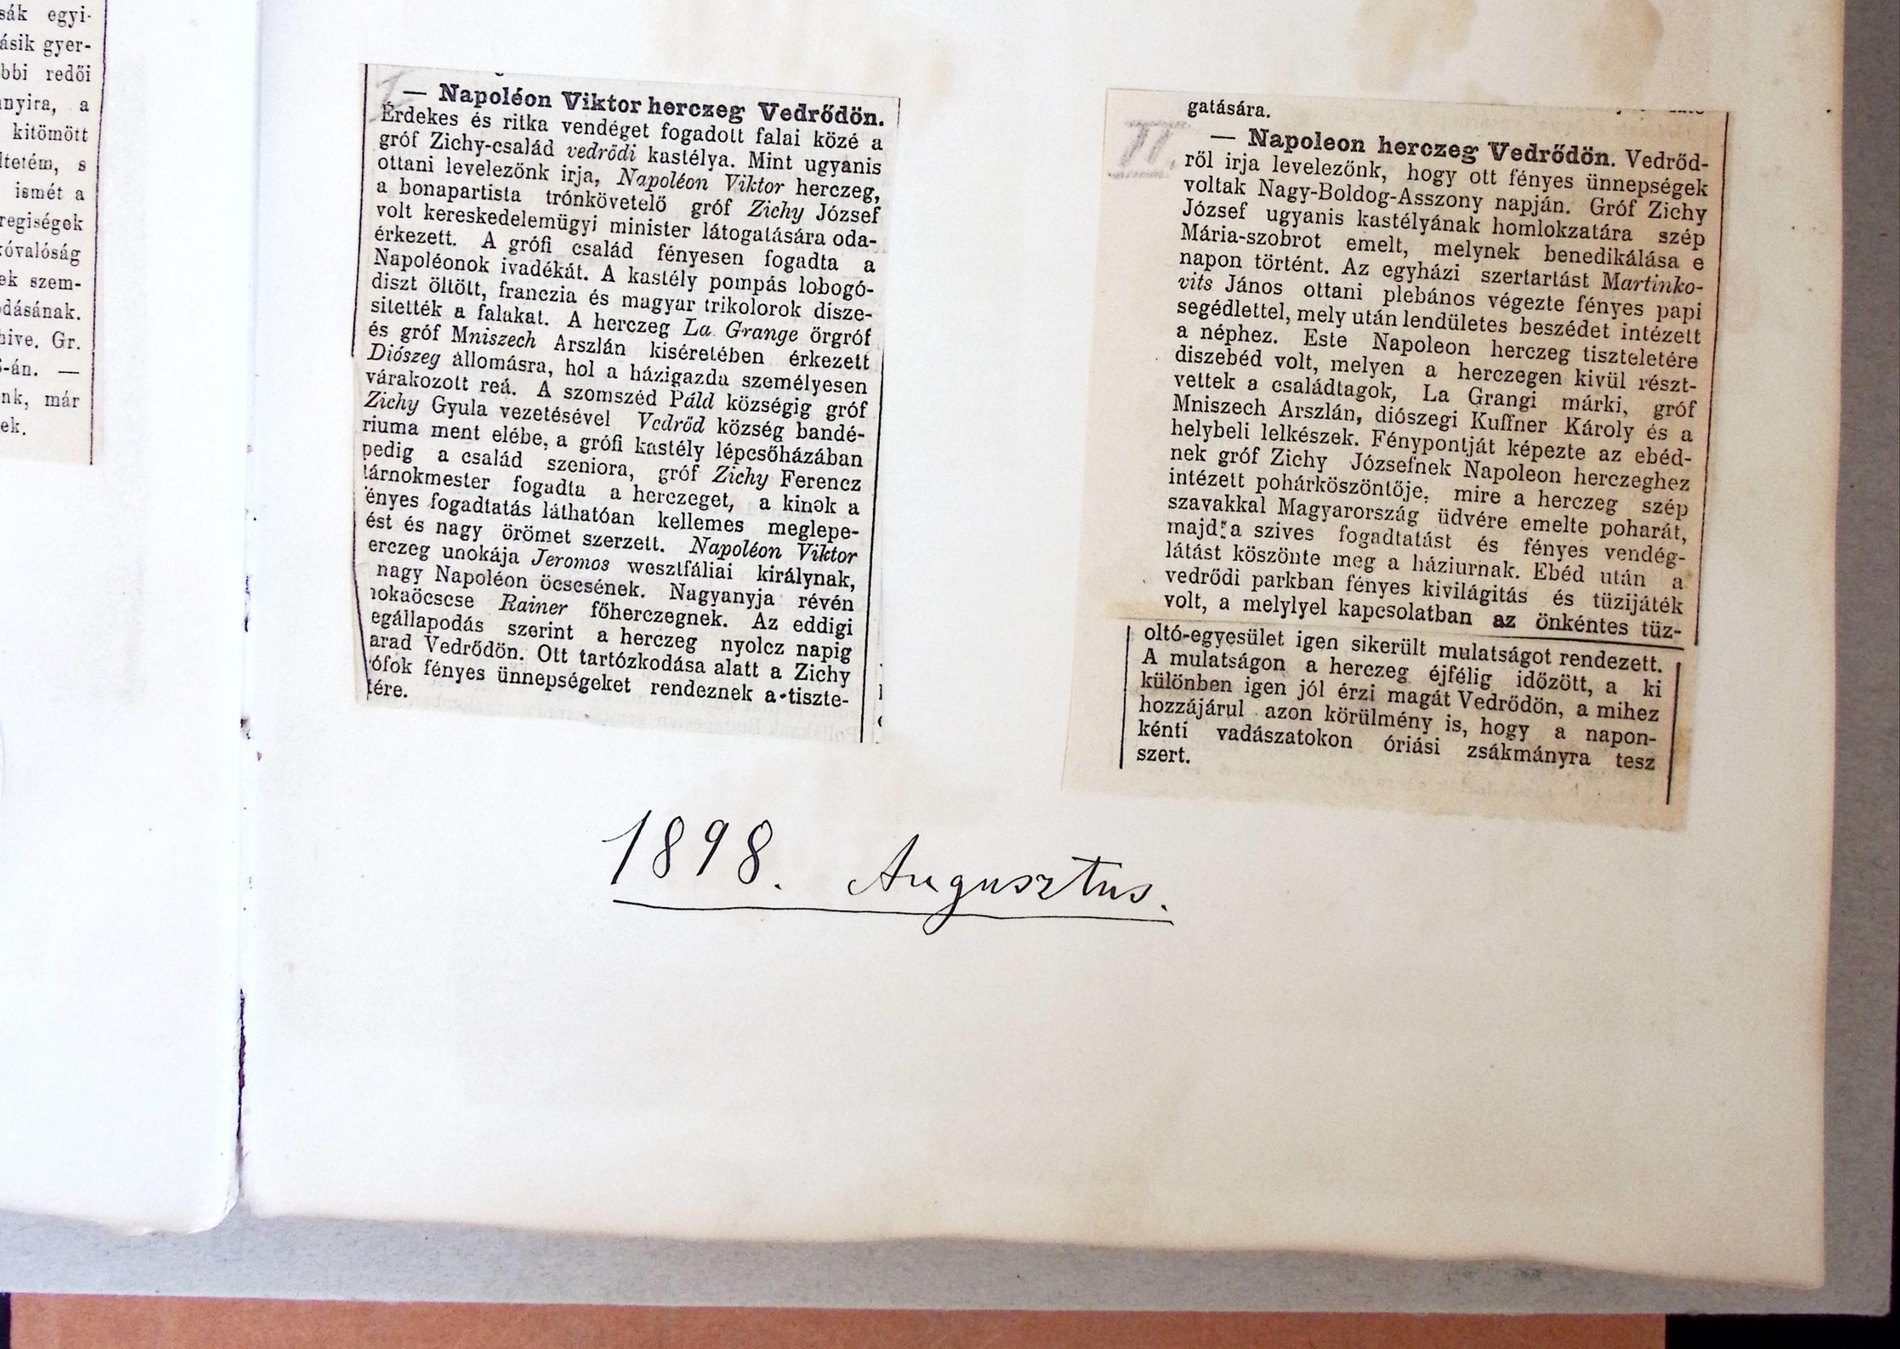 sák egyi-
ásik gyer-
bbi redői
nyira, a
kitömött
ltetém, s
ismét a
regiségek
óvalóság
ek szem-
dásának.
hive. Gr.
-án. —
nk, már
ek.
I.
— Napoléon Viktor herczeg Vedrődön.
Érdekes és ritka vendéget fogadott falai közé a
gróf Zichy-család vedrődi kastélya. Mint ugyanis
ottani levelezőnk irja, Napoléon Viktor herczeg,
a bonapartista trónkövetelő gróf Zichy József
volt kereskedelemügyi minister látogatására oda-
érkezett. A grófi család fényesen fogadta a
Napoléonok ivadékát. A kastély pompás lobogó-
diszt öltött, franczia és magyar trikolorok disze-
sitették a falakat. A herczeg La Grange őrgróf
és gróf Mniszech Arszlán kiséretében érkezett
Diószeg állomásra, hol a házigazda személyesen
várakozott reá. A szomszéd Páld községig gróf
Zichy Gyula vezetésével Vedrőd község bandé-
riuma ment elébe, a grófi kastély lépcsőházában
pedig a család szeniora, gróf Zichy Ferencz
tárnokmester fogadta a herczeget, a kinek a
ényes fogadtatás láthatóan kellemes meglepe-
ést és nagy örömet szerzett. Napoléon Viktor
erczeg unokája Jeromos wesztfáliai királynak,
nagy Napoléon öcscsének. Nagyanyja révén
nokaöcscse Rainer főherczegnek. Az eddigi
egállapodás szerint a herczeg nyolcz napig
arad Vedrődön. Ott tartózkodása alatt a Zichy
ófok fényes ünnepségeket rendeznek a tiszte-
tére.
gatására.
II.
— Napoleon herczeg Vedrődön. Vedrőd-
ről irja levelezőnk, hogy ott fényes ünnepségek
voltak Nagy-Boldog-Asszony napján. Gróf Zichy
József ugyanis kastélyának homlokzatára szép
Mária-szobrot emelt, melynek benedikálása e
napon történt. Az egyházi szertartást Martinko-
vits János ottani plebános végezte fényes papi
segédlettel, mely után lendületes beszédet intézett
a néphez. Este Napoleon herczeg tiszteletére
diszebéd volt, melyen a herczegen kivül részt-
vettek a családtagok, La Grangi márki, gróf
Mniszech Arszlán, diószegi Kuffner Károly és a
helybeli lelkészek. Fénypontját képezte az ebéd-
nek gróf Zichy Józsefnek Napoleon herczeghez
intézett pohárköszöntője, mire a herczeg szép
szavakkal Magyarország üdvére emelte poharát,
majd a szives fogadtatást és fényes vendég-
látást köszönte meg a háziurnak. Ebéd után a
vedrődi parkban fényes kivilágitás és tüzijáték
volt, a melylyel kapcsolatban az önkéntes tüz-
oltó-egyesület igen sikerült mulatságot rendezett.
A mulatságon a herczeg éjfélig időzött, a ki
különben igen jól érzi magát Vedrődön, a mihez
hozzájárul azon körülmény is, hogy a napon-
kénti vadászatokon óriási zsákmányra tesz
szert.
1898. Augusztus.